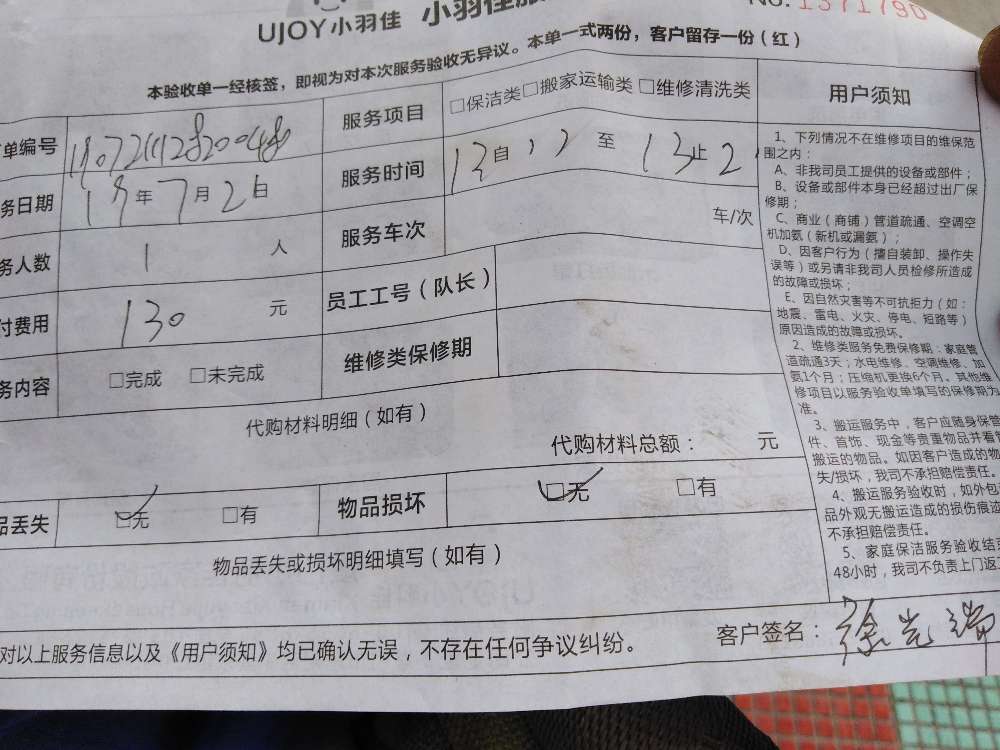 UJOY小羽佳 小羽佳服
No. 1371790
本验收单一经核签，即视为对本次服务验收无异议。本单一式两份，客户留存一份（红）
单编号
服务项目 □保洁类□搬家运输类 □维修清洗类
务日期 19年7月2日
服务时间 自 至 止
务人数 1 人
服务车次 车/次
付费用 130 元
员工工号（队长）
务内容 □完成 □未完成
维修类保修期
代购材料明细（如有）
代购材料总额： 元
品丢失 □无 □有
物品损坏 □无 □有
物品丢失或损坏明细填写（如有）
对以上服务信息以及《用户须知》均已确认无误，不存在任何争议纠纷。
客户签名：徐光瑞
用户须知
1、下列情况不在维修项目的维保范
围之内：
A、非我司员工提供的设备或部件；
B、设备或部件本身已经超过出厂保
修期；
C、商业（商铺）管道疏通、空调空
机加氨（新机或漏氨）；
D、因客户行为（擅自装卸、操作失
误等）或另请非我司人员检修所造成
的故障或损坏；
E、因自然灾害等不可抗拒力（如：
地震、雷电、火灾、停电、短路等）
原因造成的故障或损坏。
2、维修类服务免费保修期：家庭管
道疏通3天；水电维修、空调维修、加
氨1个月；压缩机更换6个月。其他维
修项目以服务验收单填写的保修期为
准。
3、搬运服务中，客户应随身保管
件、首饰、现金等贵重物品并看管
搬运的物品。如因客户造成的物
失/损坏，我司不承担赔偿责任。
4、搬运服务验收时，如外包
品外观无搬运造成的损伤痕迹
不承担赔偿责任。
5、家庭保洁服务验收结束
48小时，我司不负责上门返工